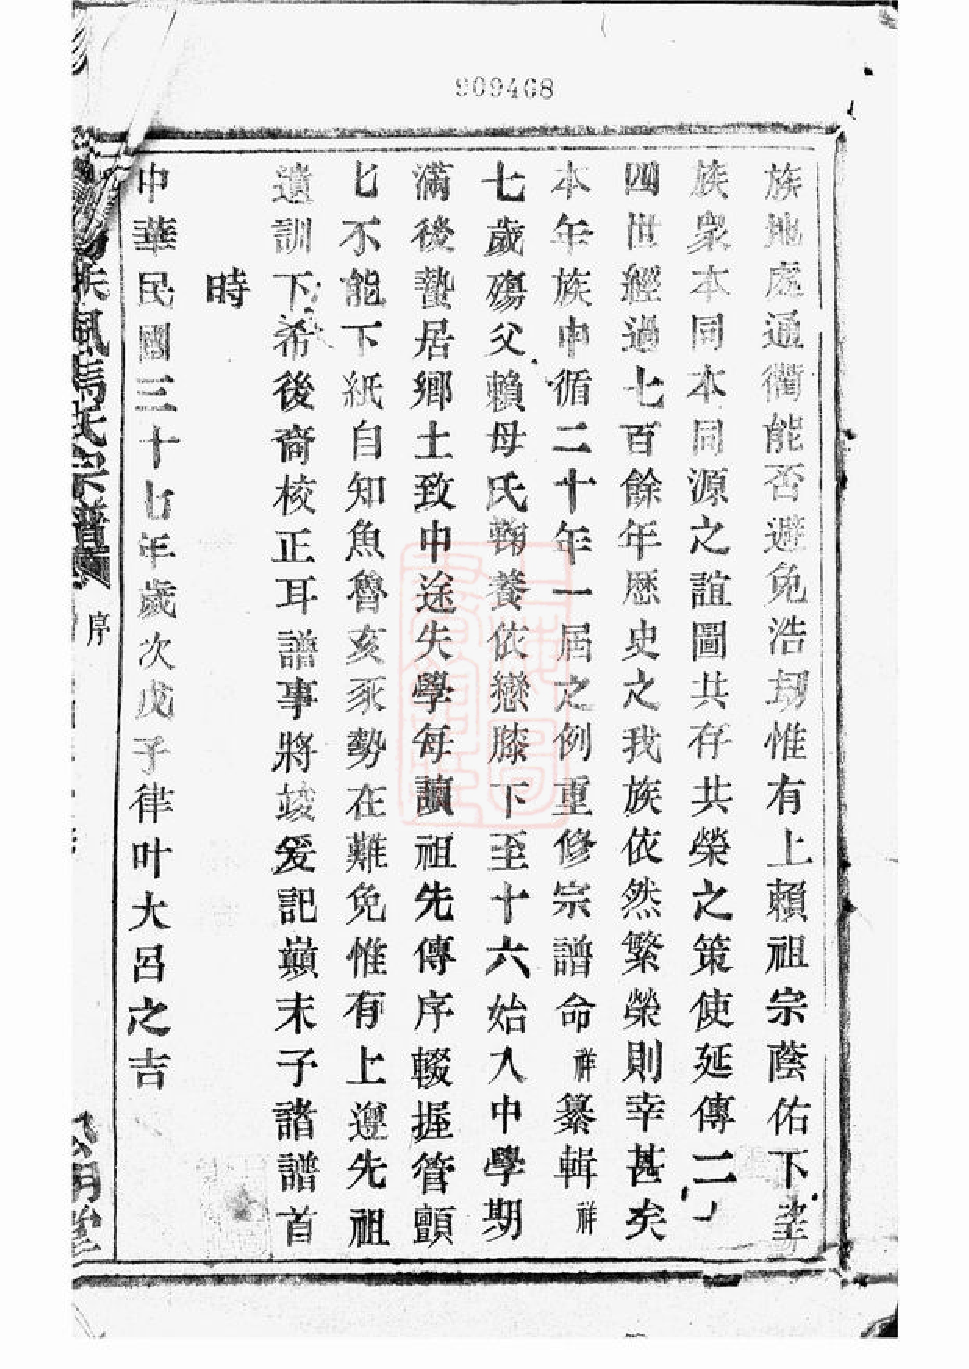 909408
族地處通衢能否避免浩刼惟有上賴祖宗蔭佑下望
族衆本同本同源之誼圖共存共榮之策使延傳二
四世經過七百餘年歷史之我族依然繁榮則幸甚矣
本年族中循二十年一屆之例重修宗譜命祥纂輯祥
七歲殤父賴母氏鞠養依戀膝下至十六始入中學期
滿後蟄居鄉土致中途失學每讀祖先傳序輟握管顫
七不能下紙自知魚魯亥豕勢在難免惟有上遵先祖
遺訓下希後裔校正耳譜事將竣爰記巔末于諸譜首
時
中華民國三十七年歲次戊子律叶大呂之吉
扶風馬氏宗譜
序